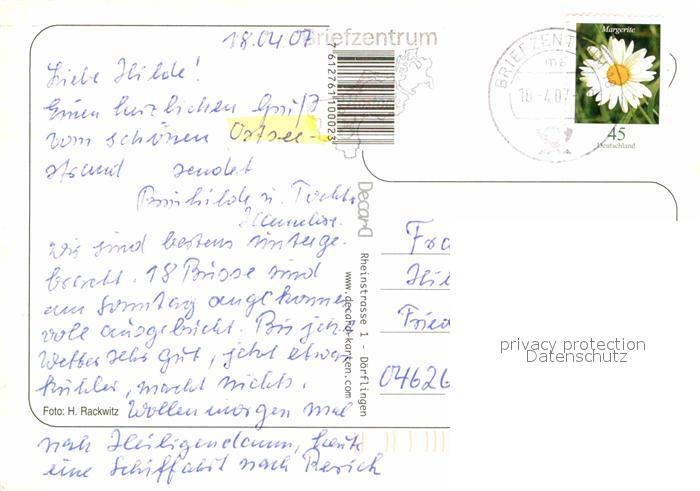 18.04.07
Briefzentrum
Liebe Hilde!
Einen herzlichen Gruß
vom schönen Ostsee-
strand sendet
Brunhilde u. Tochter
Hannelore.
Wir sind bestens unterge-
bracht. 18 Busse sind
am Sonntag angekommen
voll ausgebucht. Bis jetzt
Wetter sehr gut, jetzt etwas
kühler, macht nichts.
Wollen morgen mal
nach Heiligendamm, heute
eine Schiffahrt nach Rerich
Foto: H. Rackwitz
7612761100023
Decard
Rheinstrasse 1 - Dörflingen
www.decard-karten.com
BRIEFZENT
16.-4.07
Margerite
45
Deutschland
Fra
Hil
Fried
04626
privacy protection
Datenschutz